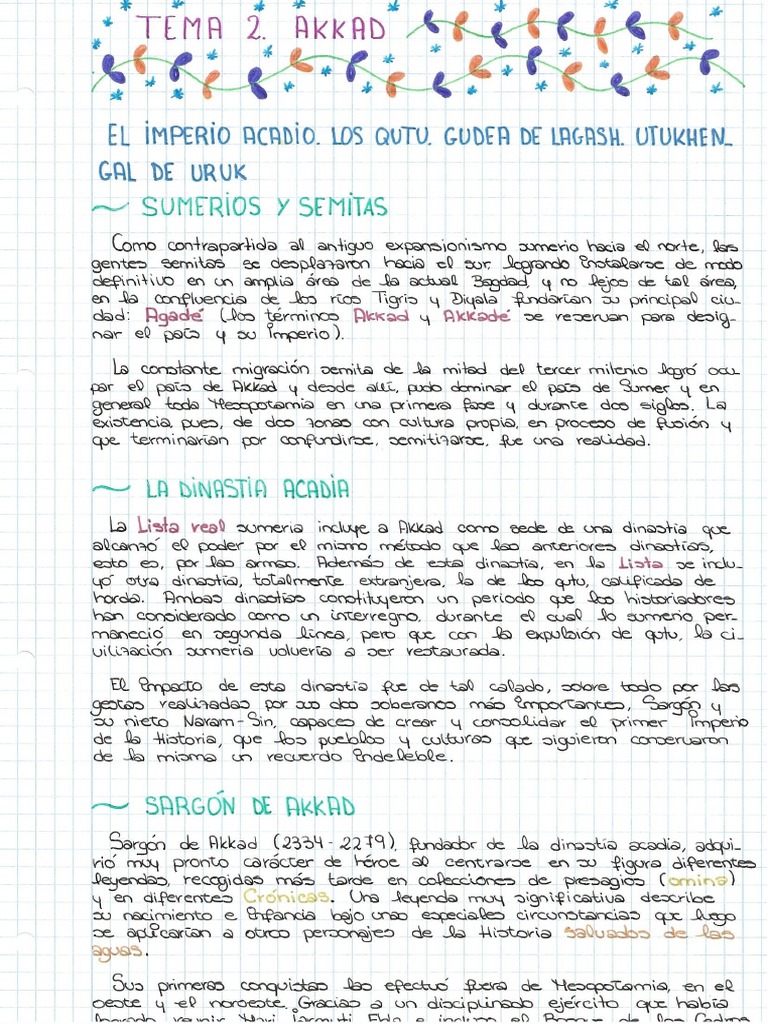 TEMA 2. AKKAD
EL IMPERIO ACADIO. LOS QUTU. GUDEA DE LAGASH. UTUKHEN-
GAL DE URUK
~ SUMERIOS Y SEMITAS
Como contrapartida al antiguo expansionismo sumerio hacia el norte, las
gentes semitas se desplazaron hacia el sur, logrando instalarse de modo
definitivo en un amplia área de la actual Bagdad, y no lejos de tal área,
en la confluencia de los ríos Tigris y Diyala fundarían su principal ciu-
dad: Agadé (los términos Akkad y Akkadé se reservan para desig-
nar el país y su Imperio).
La constante migración semita de la mitad del tercer milenio logró ocu-
par el país de Akkad y desde allí, pudo dominar el país de Sumer y en
general toda Mesopotamia en una primera fase y durante dos siglos. La
existencia, pues, de dos zonas con cultura propia, en proceso de fusión y
que terminarían por confundirse, semitizarse, fue una realidad.
~ LA DINASTIA ACADIA
La Lista real sumeria incluye a Akkad como sede de una dinastía que
alcanzó el poder por el mismo método que las anteriores dinastías,
esto es, por las armas. Además de esta dinastía, en la Lista se inclu-
yó otra dinastía, totalmente extranjera, la de los qutu, calificada de
horda. Ambas dinastías constituyeron un periodo que los historiadores
han considerado como un interregno, durante el cual lo sumerio per-
maneció en segunda línea, pero que con la expulsión de qutu, la ci-
vilización sumeria volvería a ser restaurada.
El impacto de esta dinastía fue de tal calado, sobre todo por las
gestas realizadas por sus dos soberanos más importantes, Sargón y
su nieto Naram-Sin, capaces de crear y consolidar el primer Imperio
de la Historia, que los pueblos y culturas que siguieron conservaron
de la misma un recuerdo indeleble.
~ SARGÓN DE AKKAD
Sargón de Akkad (2334-2279), fundador de la dinastía acadia, adqui-
rió muy pronto carácter de héroe al centrarse en su figura diferentes
leyendas, recogidas más tarde en colecciones de presagios (omina)
y en diferentes Crónicas. Una leyenda muy significativa describe
su nacimiento e infancia bajo unas especiales circunstancias que luego
se aplicarían a otros personajes de la Historia salvados de las
aguas.
Sus primeras conquistas las efectuó fuera de Mesopotamia, en el
oeste y el noroeste. Gracias a un disciplinado ejército que había
logrado reunir Mari, Iarmuti, Ebla e incluso el Bosque de los Cedros